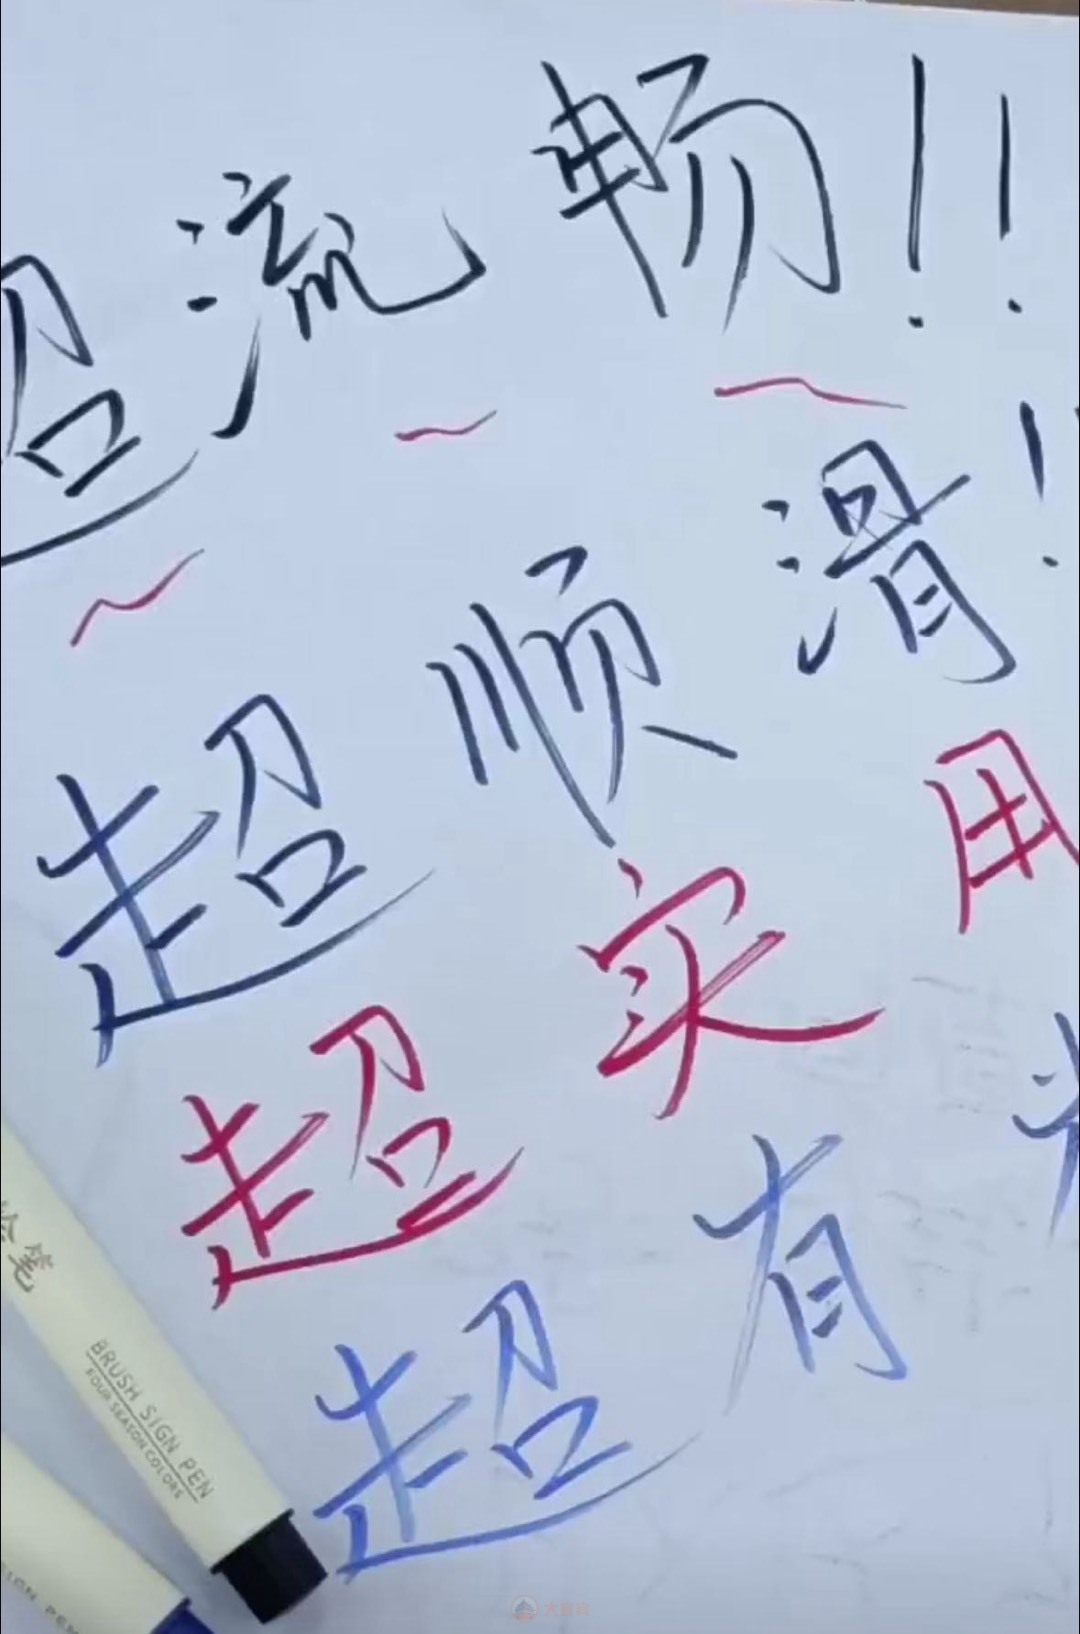 超流畅!!
超顺滑!
超实用
超有
笔
BRUSH SIGN PEN
FOUR SEASON COLORS
SIGN PEN